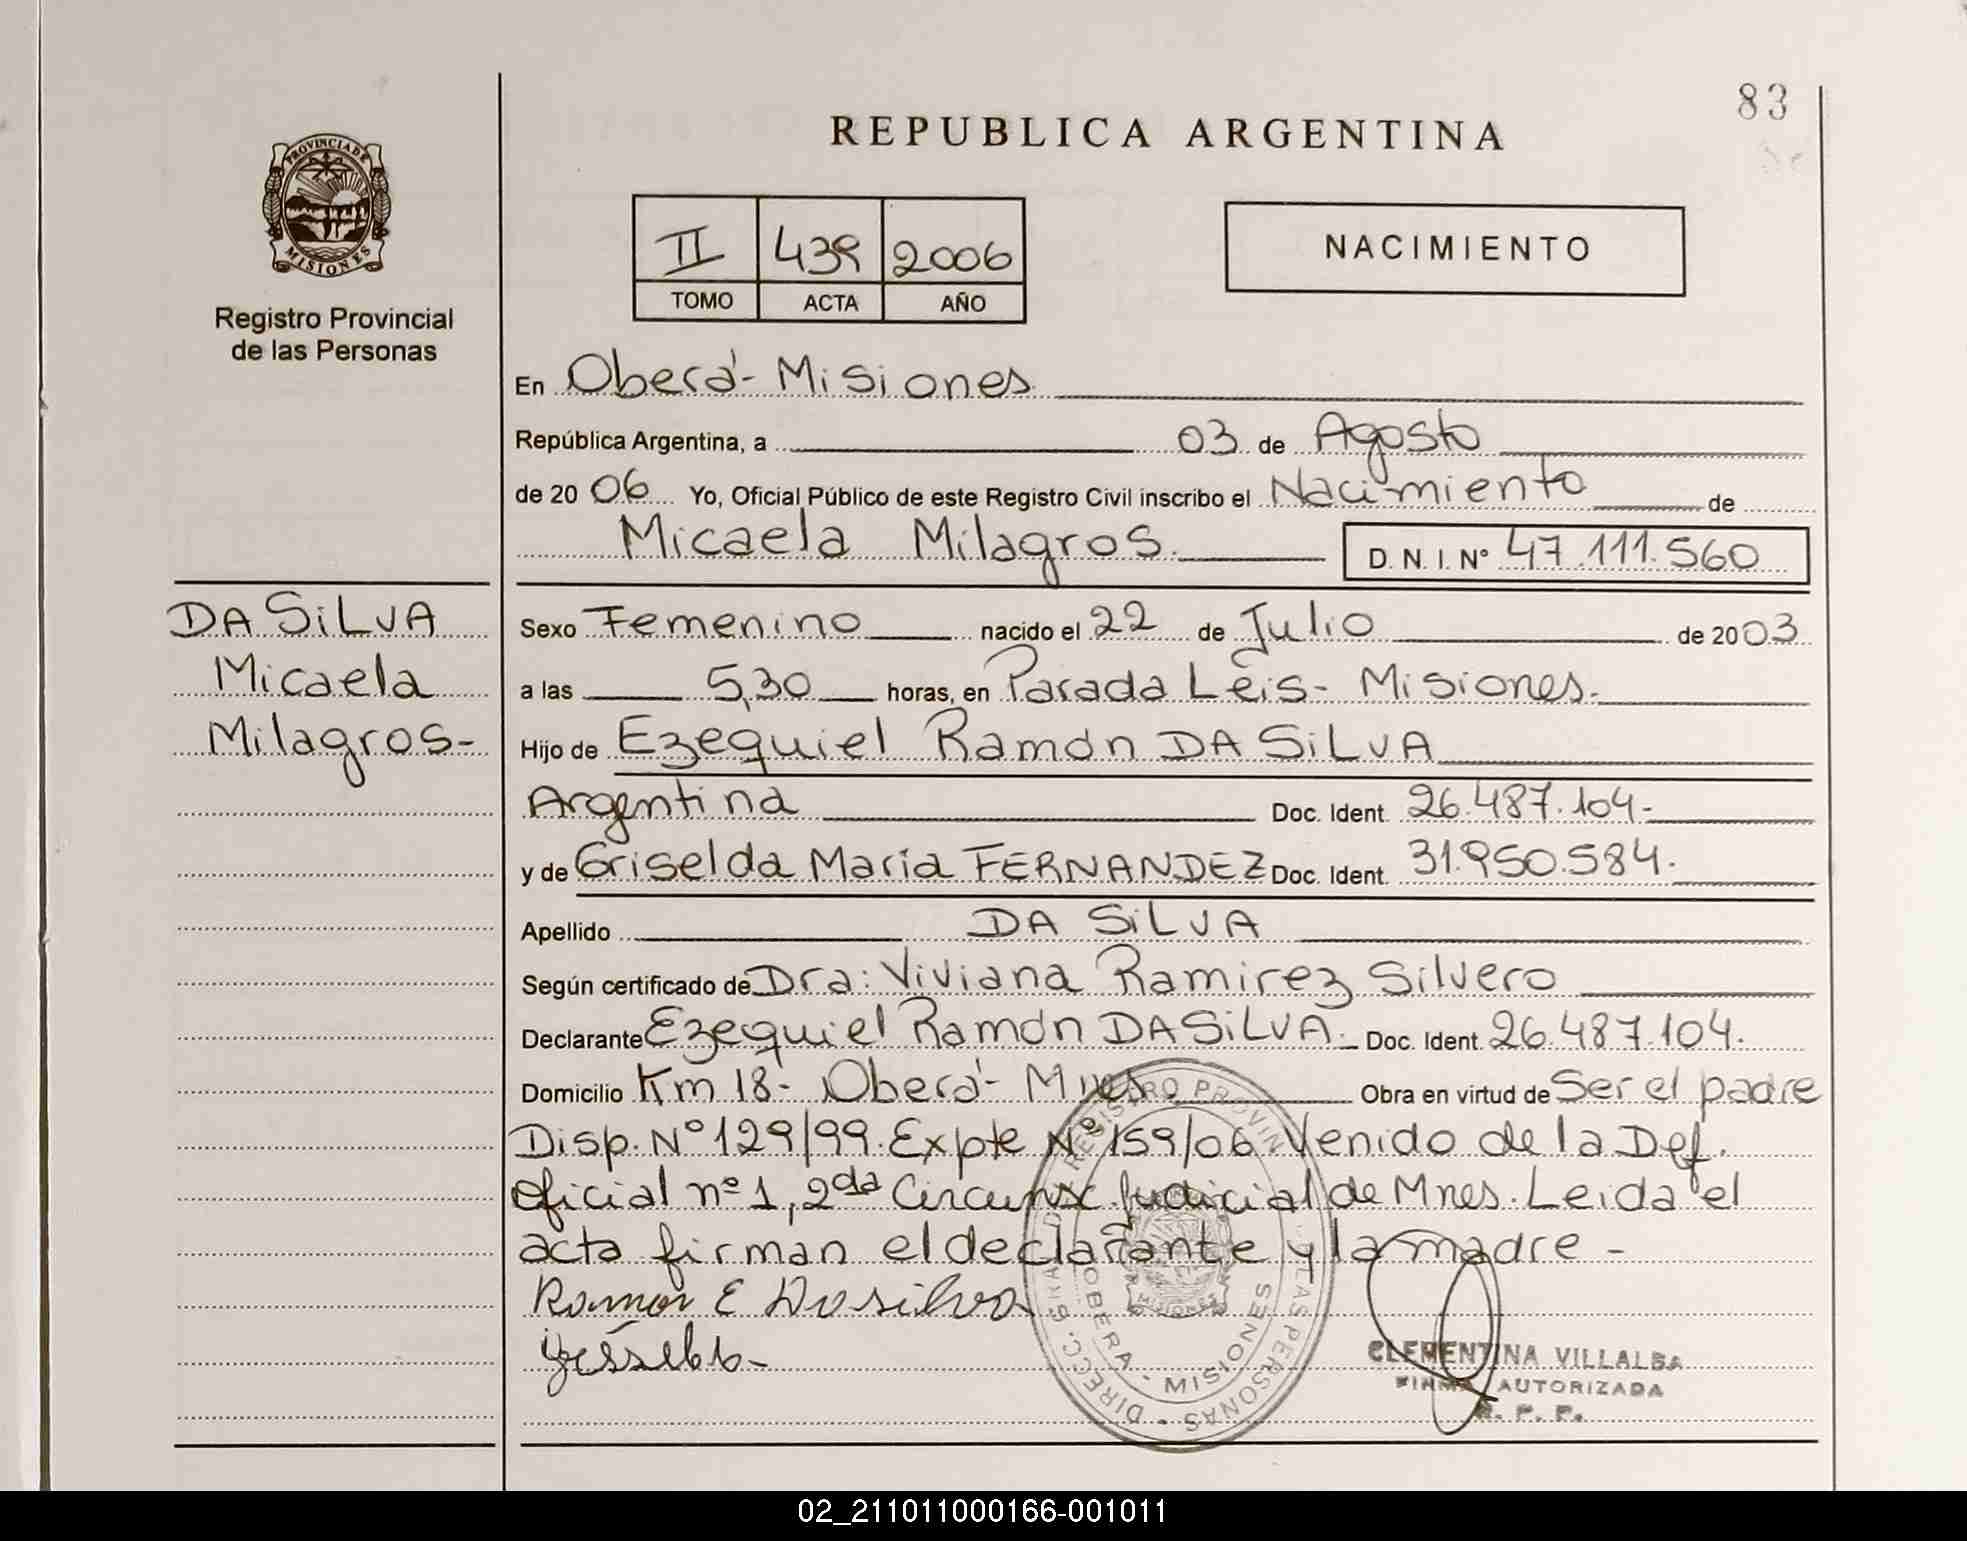 83
REPUBLICA ARGENTINA
PROVINCIA DE
MISIONES
Registro Provincial
de las Personas
II 439 2006
TOMO ACTA AÑO
NACIMIENTO
En Oberá - Misiones
República Argentina, a 03 de Agosto
de 20 06 Yo, Oficial Público de este Registro Civil inscribo el Nacimiento de
Micaela Milagros. D. N. I. Nº 47.111.560
DA SiLVA
Micaela
Milagros-
Sexo Femenino nacido el 22 de Julio de 2003
a las 5,30 horas, en Parada Leis - Misiones.
Hijo de Ezequiel Ramón DA SiLVA
Argentina Doc. Ident. 26.487.104-
y de Griselda María FERNANDEZ Doc. Ident. 31.950.584.
Apellido DA SiLVA
Según certificado de Dra: Viviana Ramirez Silvero
Declarante Ezequiel Ramón DA SiLVA. Doc. Ident. 26.487.104.
Domicilio Km 18 - Oberá - Mnes Obra en virtud de Ser el padre
Disp. Nº 129/99. Expte Nº 159/06 Venido de la Def.
oficial nº 1, 2da Circunsc. Judicial de Mnes. Leida el
acta firman el declarante y la madre -
Ramon E Dasilva
DIRECC. GRAL. DEL REGISTRO PROVIN. DE LAS PERSONAS
OBERA - MISIONES
MISIONES
CLEMENTINA VILLALBA
FIRMA AUTORIZADA
R. P. P.
02_211011000166-001011